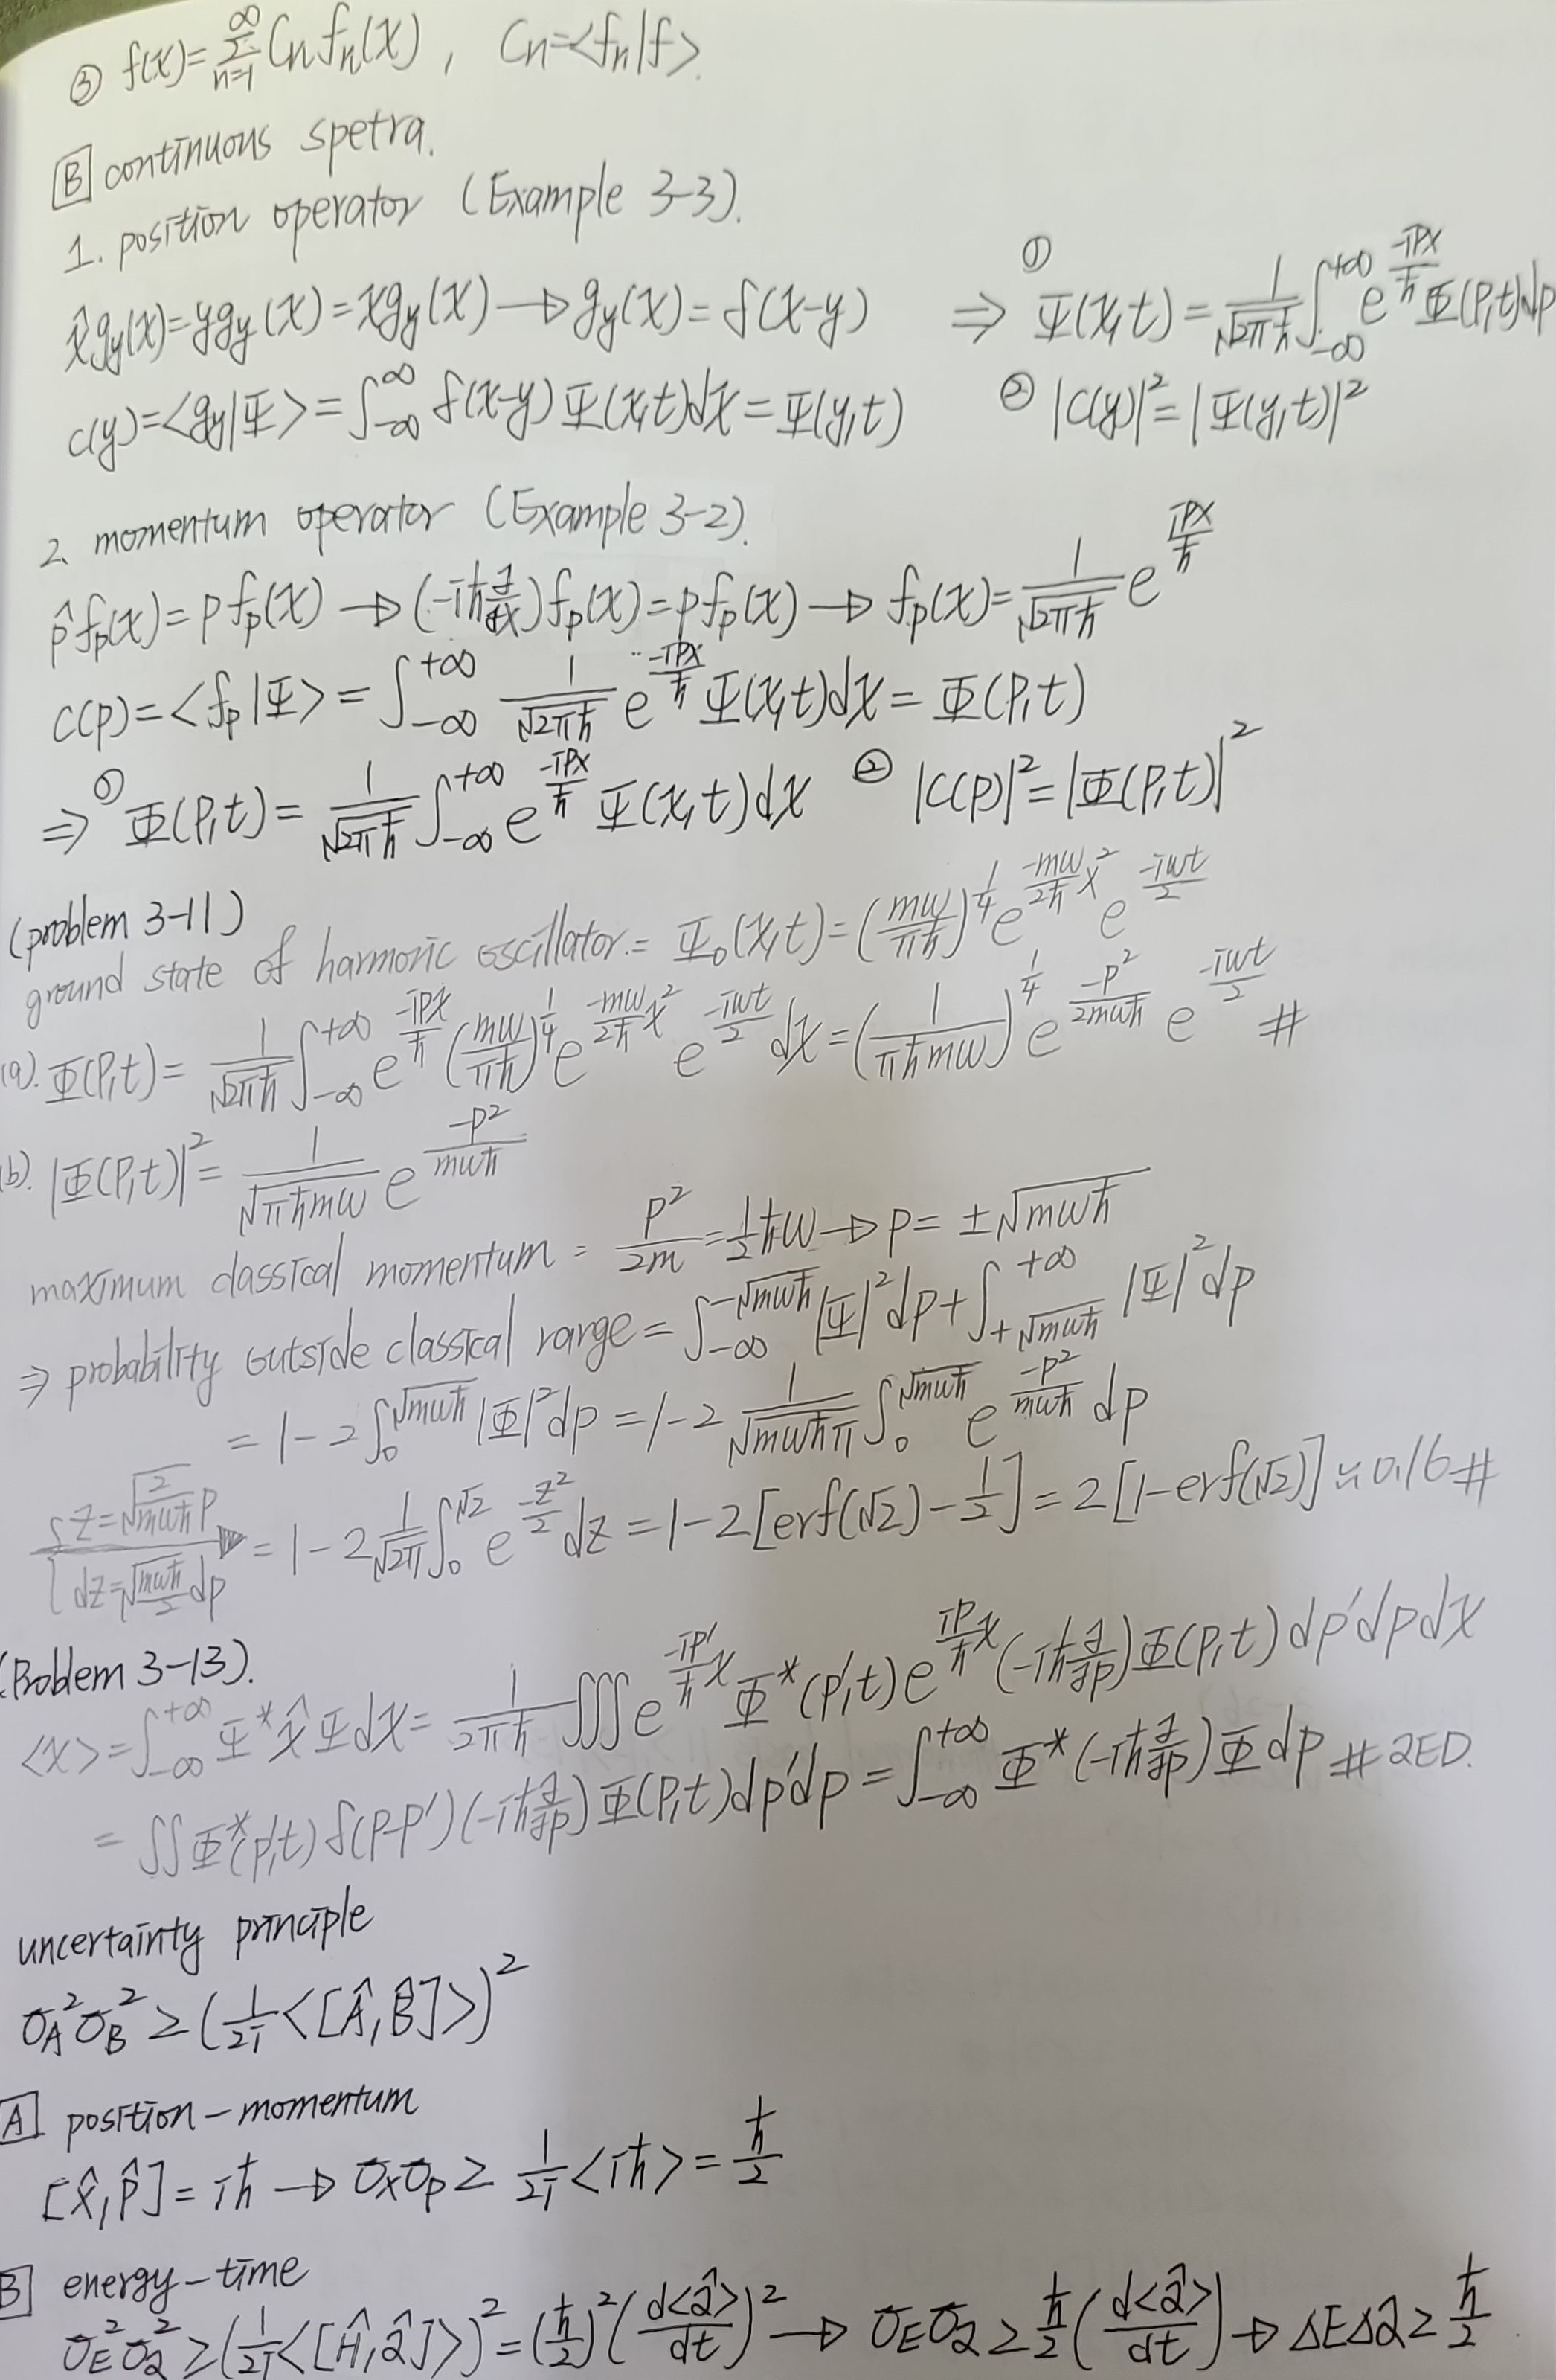 ③ f(x)=∑_{n=1}^{∞} Cn fn(x), Cn=<fn|f>.
[B] continuous spetra.
1. position operator (Example 3-3).
x̂gy(x)=ygy(x)=xgy(x)→gy(x)=δ(x-y) ⇒ ① Ψ(x,t)=1/√(2πħ) ∫_{-∞}^{+∞} e^{-ipx/ħ} Φ(p,t)dp
c(y)=<gy|Ψ>=∫_{-∞}^{∞} δ(x-y)Ψ(x,t)dx=Ψ(y,t) ② |c(y)|²=|Ψ(y,t)|²
2. momentum operator (Example 3-2).
p̂fp(x)=pfp(x)→(-iħ d/dx)fp(x)=pfp(x)→fp(x)=1/√(2πħ) e^{ipx/ħ}
c(p)=<fp|Ψ>=∫_{-∞}^{+∞} 1/√(2πħ) e^{-ipx/ħ} Ψ(x,t)dx=Φ(p,t)
⇒ ① Φ(p,t)=1/√(2πħ) ∫_{-∞}^{+∞} e^{-ipx/ħ} Ψ(x,t)dx ② |c(p)|²=|Φ(p,t)|²
(problem 3-11)
ground state of harmonic oscillator = Ψ₀(x,t)=(mω/πħ)^{1/4} e^{-mω/2ħ x²} e^{-iωt/2}
(a). Φ(p,t)=1/√(2πħ) ∫_{-∞}^{+∞} e^{-ipx/ħ} (mω/πħ)^{1/4} e^{-mω/2ħ x²} e^{-iωt/2} dx=(1/πħmω)^{1/4} e^{-p²/2mωħ} e^{-iωt/2} #
(b). |Φ(p,t)|²=1/√(πħmω) e^{-p²/mωħ}
maximum classical momentum = p²/2m=½ħω→p=±√(mωħ)
⇒ probability outside classical range=∫_{-∞}^{-√(mωħ)} |Φ|²dp+∫_{+√(mωħ)}^{+∞} |Φ|²dp
=1-2∫_0^{√(mωħ)} |Φ|²dp=1-2 1/√(mωħπ) ∫_0^{√(mωħ)} e^{-p²/mωħ} dp
{z=√(2/mωħ) p, dz=√(mωħ/2) dp → =1-2 1/√(2π) ∫_0^{√2} e^{-z²/2} dz=1-2[erf(√2)-1/2]=2[1-erf(√2)]≈0.16 #
(Problem 3-13).
<x>=∫_{-∞}^{+∞} Ψ*x̂Ψdx=1/2πħ ∭ e^{-ip'/ħ x} Φ*(p',t) e^{ip/ħ x} (-iħ ∂/∂p)Φ(p,t)dp'dpdx
=∬Φ*(p',t)δ(p-p')(-iħ ∂/∂p)Φ(p,t)dp'dp=∫_{-∞}^{+∞} Φ*(-iħ ∂/∂p)Φdp # QED.
uncertainty principle
σA²σB²≥(1/2i <[Â,B̂]>)²
[A] position-momentum
[x̂,p̂]=iħ→σxσp≥1/2i <iħ>=ħ/2
[B] energy-time
σE²σQ²≥(1/2i <[Ĥ,Q̂]>)²=(ħ/2)²(d<Q̂>/dt)²→σEσQ≥ħ/2(d<Q̂>/dt)→ΔEΔQ̂≥ħ/2